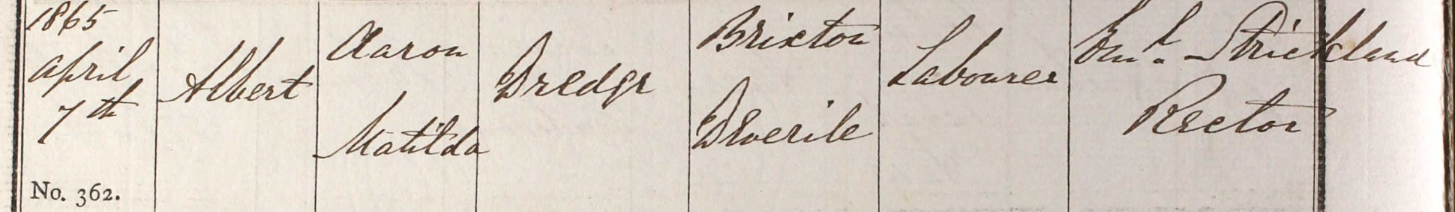 1865
April
7th
Albert
Aaron
Matilda
Dredge
Brixton
Deverile
Labourer
Strickland
Rector
No. 362.